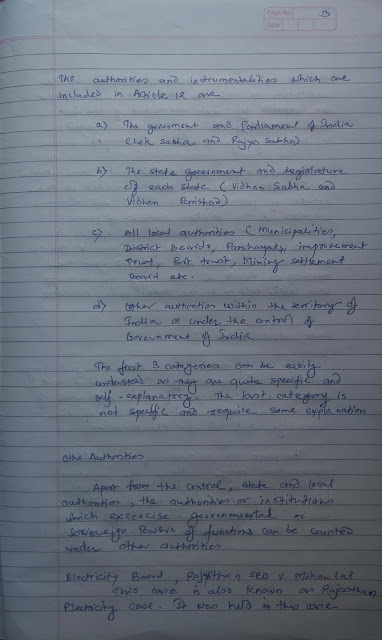 Page No. 3
Date
The authorities and instrumentalities which are
included in Article 12 are
a) The government and Parliament of India
(Lok Sabha and Rajya Sabha)
b) The state government and legislature
of each state (Vidhan Sabha and
Vidhan Parishad)
c) All local authorities (Municipalities,
District Boards, Panchayats, improvement
Trust, Port trust, Mining settlement
Board etc.
d) Other authorities within the territory of
India or under the control of
Government of India
The first 3 categories can be easily
understood as they are quite specific and
self-explanatory. The last category is
not specific and require some explanation
Other Authorities
Apart from the central, state and local
authorities, the authorities or institutions
which excercise governmental or
sovereign powers of functions can be counted
under other authorities
Electricity Board, Rajasthan SEB v Mohan Lal
This case is also known as Rajasthan
Electricity case. It was held in this case